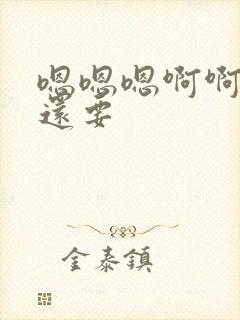 嗯嗯嗯啊啊
還要
金泰鎮